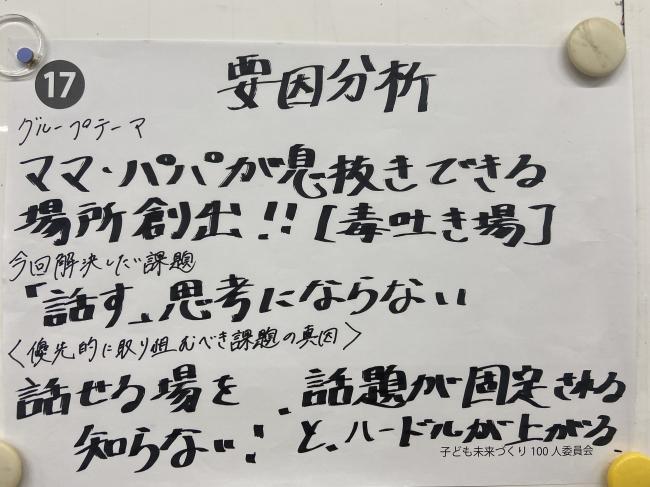 17
要因分析
グループテーマ
ママ・パパが息抜きできる
場所創出!! [毒吐き場]
今回解決したい課題
「話す」思考にならない
〈優先的に取り組むべき課題の真因〉
話せる場を
知らない!
・話題が固定される
と、ハードルが上がる
子ども未来づくり100人委員会